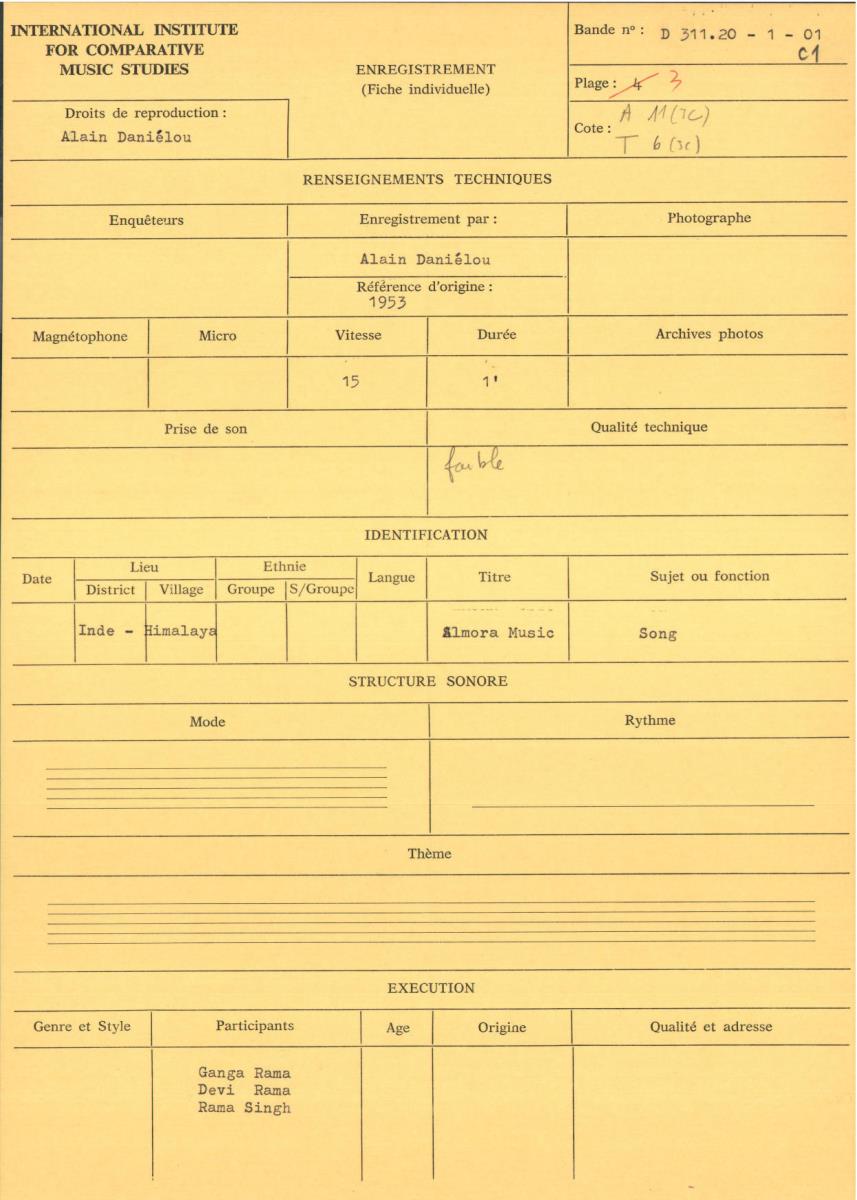 INTERNATIONAL INSTITUTE
FOR COMPARATIVE
MUSIC STUDIES
ENREGISTREMENT
(Fiche individuelle)
Bande nº : D 311.20 - 1 - 01
C1
Plage : 4 3
Droits de reproduction :
Alain Daniélou
Cote : A 11 (3c)
T 6 (3c)
RENSEIGNEMENTS TECHNIQUES
Enquêteurs
Enregistrement par :
Photographe
Alain Daniélou
Référence d'origine :
1953
Magnétophone
Micro
Vitesse
Durée
Archives photos
15
1'
Prise de son
Qualité technique
faible
IDENTIFICATION
Date
Lieu
Ethnie
Langue
Titre
Sujet ou fonction
District
Village
Groupe
S/Groupe
Inde - Himalaya
Almora Music
Song
STRUCTURE SONORE
Mode
Rythme
Thème
EXECUTION
Genre et Style
Participants
Age
Origine
Qualité et adresse
Ganga Rama
Devi Rama
Rama Singh